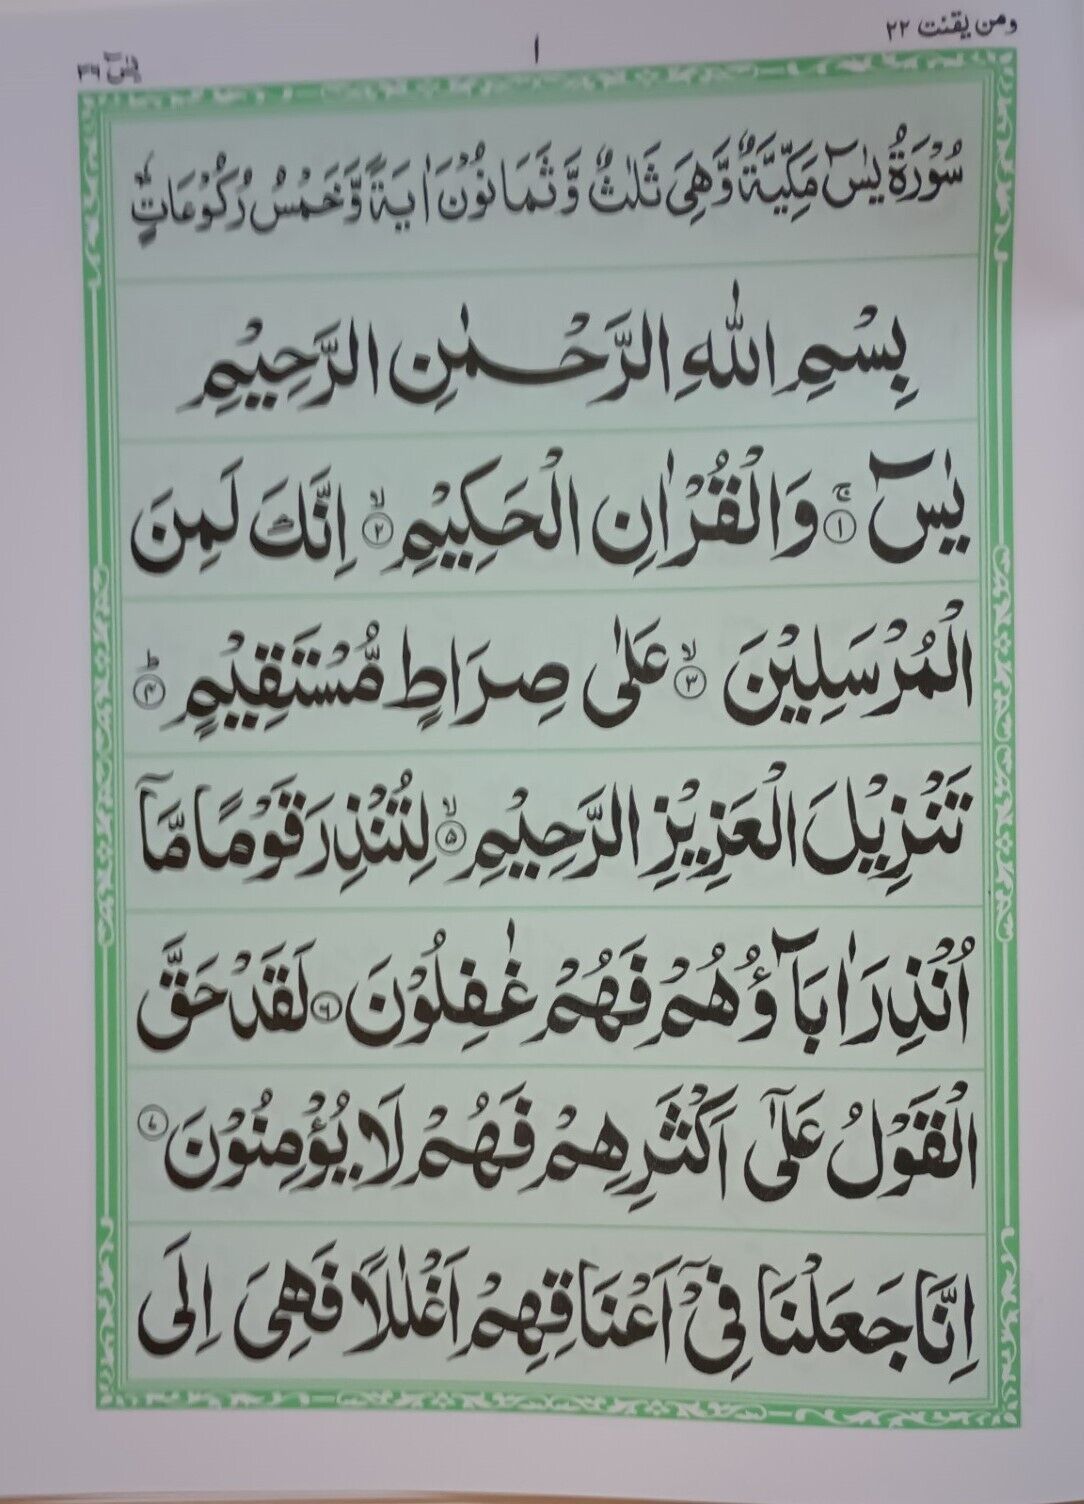 ومن يقنت ٢٢
١
يٰسٓ ٣٦
سُوْرَةُ يٰسٓ مَكِّيَّةٌ وَّهِيَ ثَلٰثٌ وَّثَمَانُوْنَ اٰيَةً وَّخَمْسُ رُكُوْعَاتٍ
بِسْمِ اللّٰهِ الرَّحْمٰنِ الرَّحِيْمِ
يٰسٓ ۚ﴿۱﴾ وَالْقُرْاٰنِ الْحَكِيْمِ ۙ﴿۲﴾ اِنَّكَ لَمِنَ
الْمُرْسَلِيْنَ ۙ﴿۳﴾ عَلٰى صِرَاطٍ مُّسْتَقِيْمٍ ؕ﴿۴﴾
تَنْزِيْلَ الْعَزِيْزِ الرَّحِيْمِ ۙ﴿۵﴾ لِتُنْذِرَ قَوْمًا مَّاۤ
اُنْذِرَ اٰبَآؤُهُمْ فَهُمْ غٰفِلُوْنَ ﴿۶﴾ لَقَدْ حَقَّ
الْقَوْلُ عَلٰۤى اَكْثَرِهِمْ فَهُمْ لَا يُؤْمِنُوْنَ ﴿۷﴾
اِنَّا جَعَلْنَا فِيْۤ اَعْنَاقِهِمْ اَغْلٰلًا فَهِيَ اِلَى